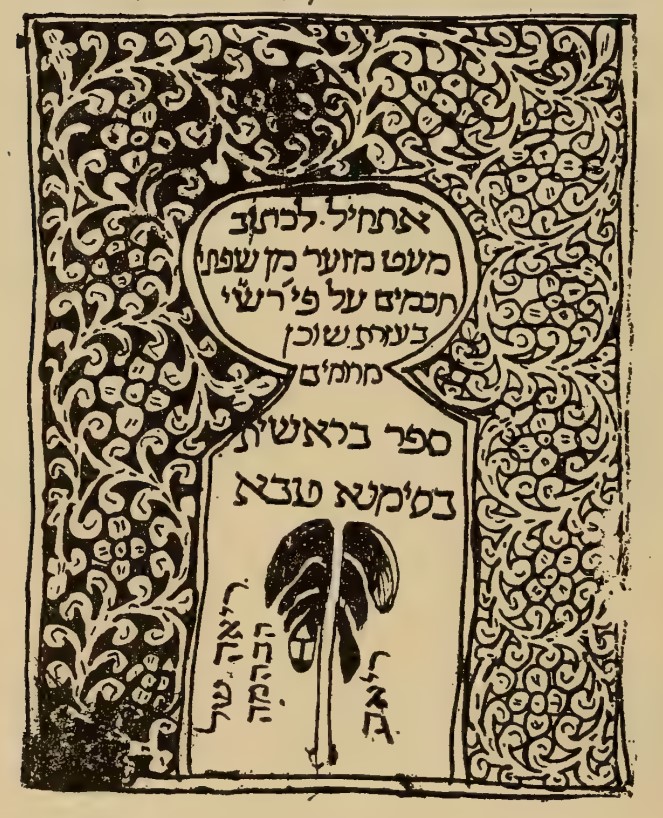 אתחיל לכתוב
מעט מזער מן שפתי
חכמים על פי' רש"י
בעזרת שוכן
מרומים
ספר בראשית
בסימנא טבא
ריאה של
הבהמה